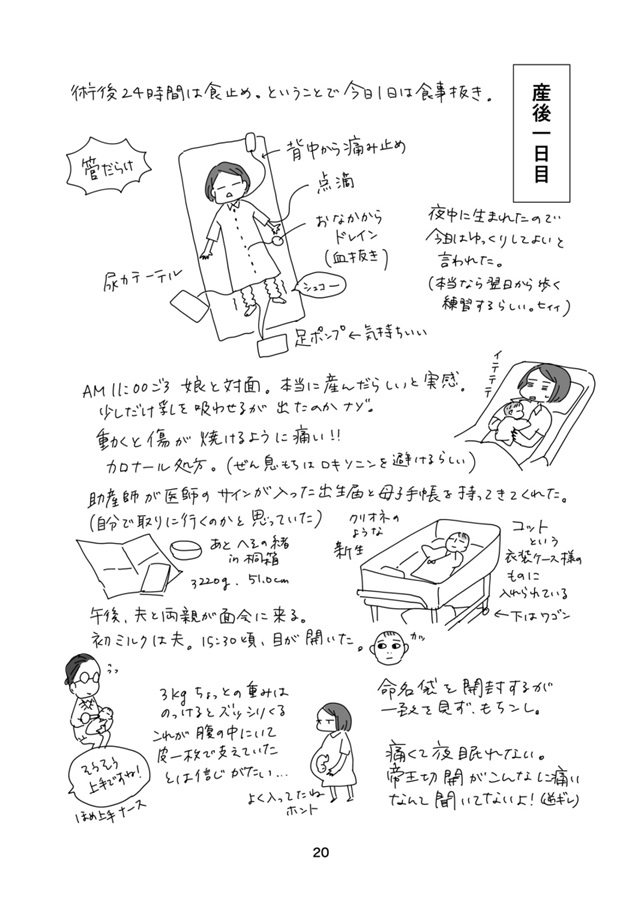 産後一日目
術後24時間は食止め。ということで今日1日は食事抜き。
管だらけ
背中から痛み止め
点滴
おなかから
ドレイン
(血抜き)
尿カテーテル
シュコー
足ポンプ←気持ちいい
夜中に生まれたので
今日はゆっくりしてよいと
言われた。
(本当なら翌日から歩く
練習するらしい。ヒィィ)
AM11:00ごろ 娘と対面。本当に産んだらしいと実感。
少しだけ乳を吸わせるが出たのかナゾ。
動くと傷が焼けるように痛い!!
カロナール処方。(ぜん息もちはロキソニンを避けるらしい)
イテテテテ
助産師が医師のサインが入った出生届と母子手帳を持ってきてくれた。
(自分で取りに行くのかと思っていた)
あとへその緒
in 桐箱
3220g. 51.0cm
クリオネの
ような
新生
コット
という
衣装ケース様の
ものに
入れられている
←下はワゴン
午後、夫と両親が面会に来る。
初ミルクは夫。15:30頃、目が開いた。
カッ
そうそう
上手ですね!
ほめ上手ナース
3kgちょっとの重みは
のっけるとズッシリくる
これが腹の中にいて
皮一枚で支えていた
とは信じがたい…
よく入ってたね
ホント
命名袋を開封するが
一致を見ず、もちこし。
痛くて夜眠れない。
帝王切開がこんなに痛い
なんて聞いてないよ!(逆ギレ)
20